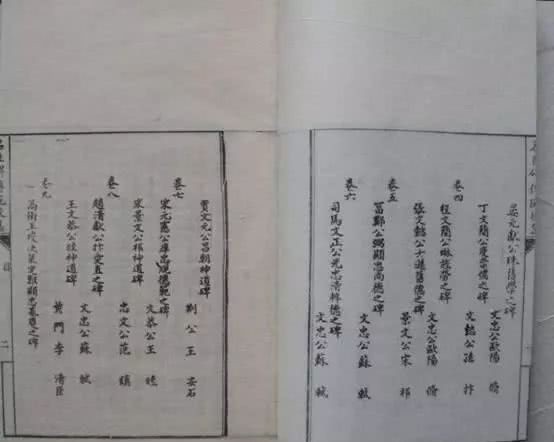 晏元獻公殊舊學之碑
文忠公歐陽脩
丁文簡公度崇儒之碑
文懿公孫抃
卷四
程文簡公琳旌勞之碑
文忠公歐陽脩
張文懿公士遜舊德之碑
景文公宋祁
卷五
富鄭公弼顯忠尚德之碑
文忠公蘇軾
卷六
司馬文正公光忠清粹德之碑
文忠公蘇軾
賈文元公昌朝神道碑
荆公王安石
卷七
宋元憲公庠忠規德範之碑
文恭公王珪
宋景文公祁神道碑
忠文公范鎮
卷八
趙清獻公抃愛直之碑
文忠公蘇軾
王文恭公珪神道碑
黃門李清臣
卷九
高衛王瓊決策定難顯忠基慶之碑